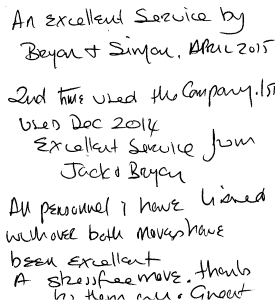 An excellent Service by
Bryan & Simon, APRIL 2015
2nd time used the Company. 1st
used Dec 2014
Excellent Service from
Jack & Bryan
All personnel I have liaised
with over both moves have
been excellent
A stress free move. Thanks
to them all. Great